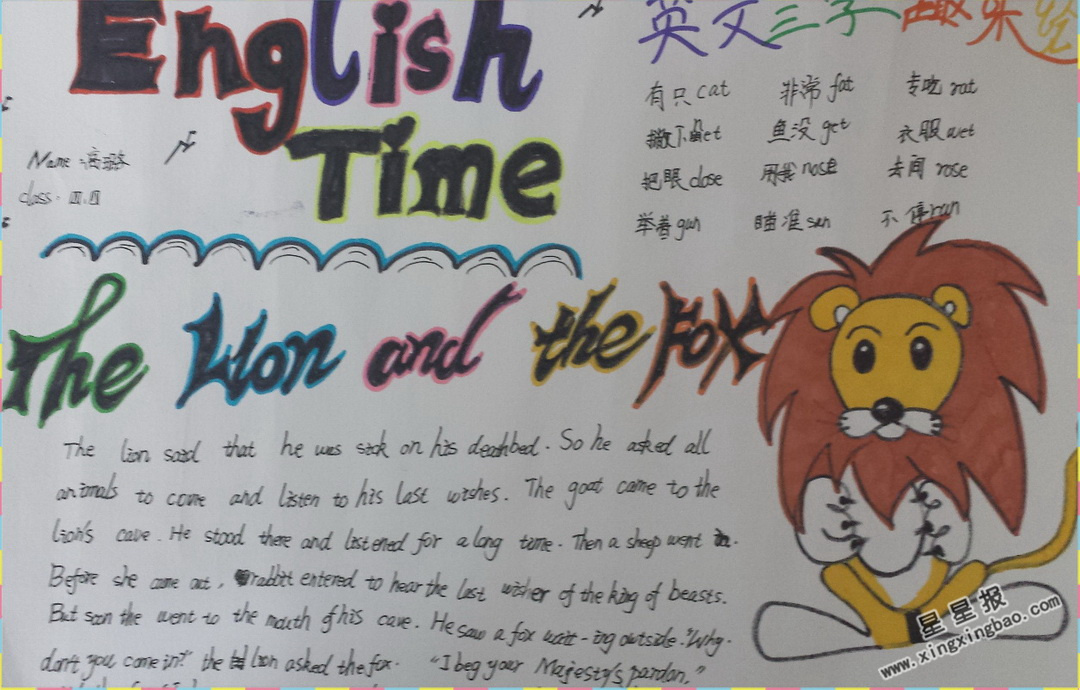 English
Time
英文三字趣味绘
Name:
class: 三.四
有只cat 非常fat 专吃rat
撒下net 鱼没get 衣服wet
把眼close 用我nose 去闻rose
举着gun 瞄准sun 不停run
The Lion and the Fox
The lion said that he was sick on his deathbed. So he asked all
animals to come and listen to his last wishes. The goat came to the
lion's cave. He stood there and listened for a long time. Then a sheep went in.
Before she came out, rabbit entered to hear the last wisher of the king of beasts.
But soon the went to the mouth of his cave. He saw a fox wait-ing outside. "Why.
don't you come in?" the lion asked the fox. "I beg your Majesty's pardon,"
星星报
www.xingxingbao.com